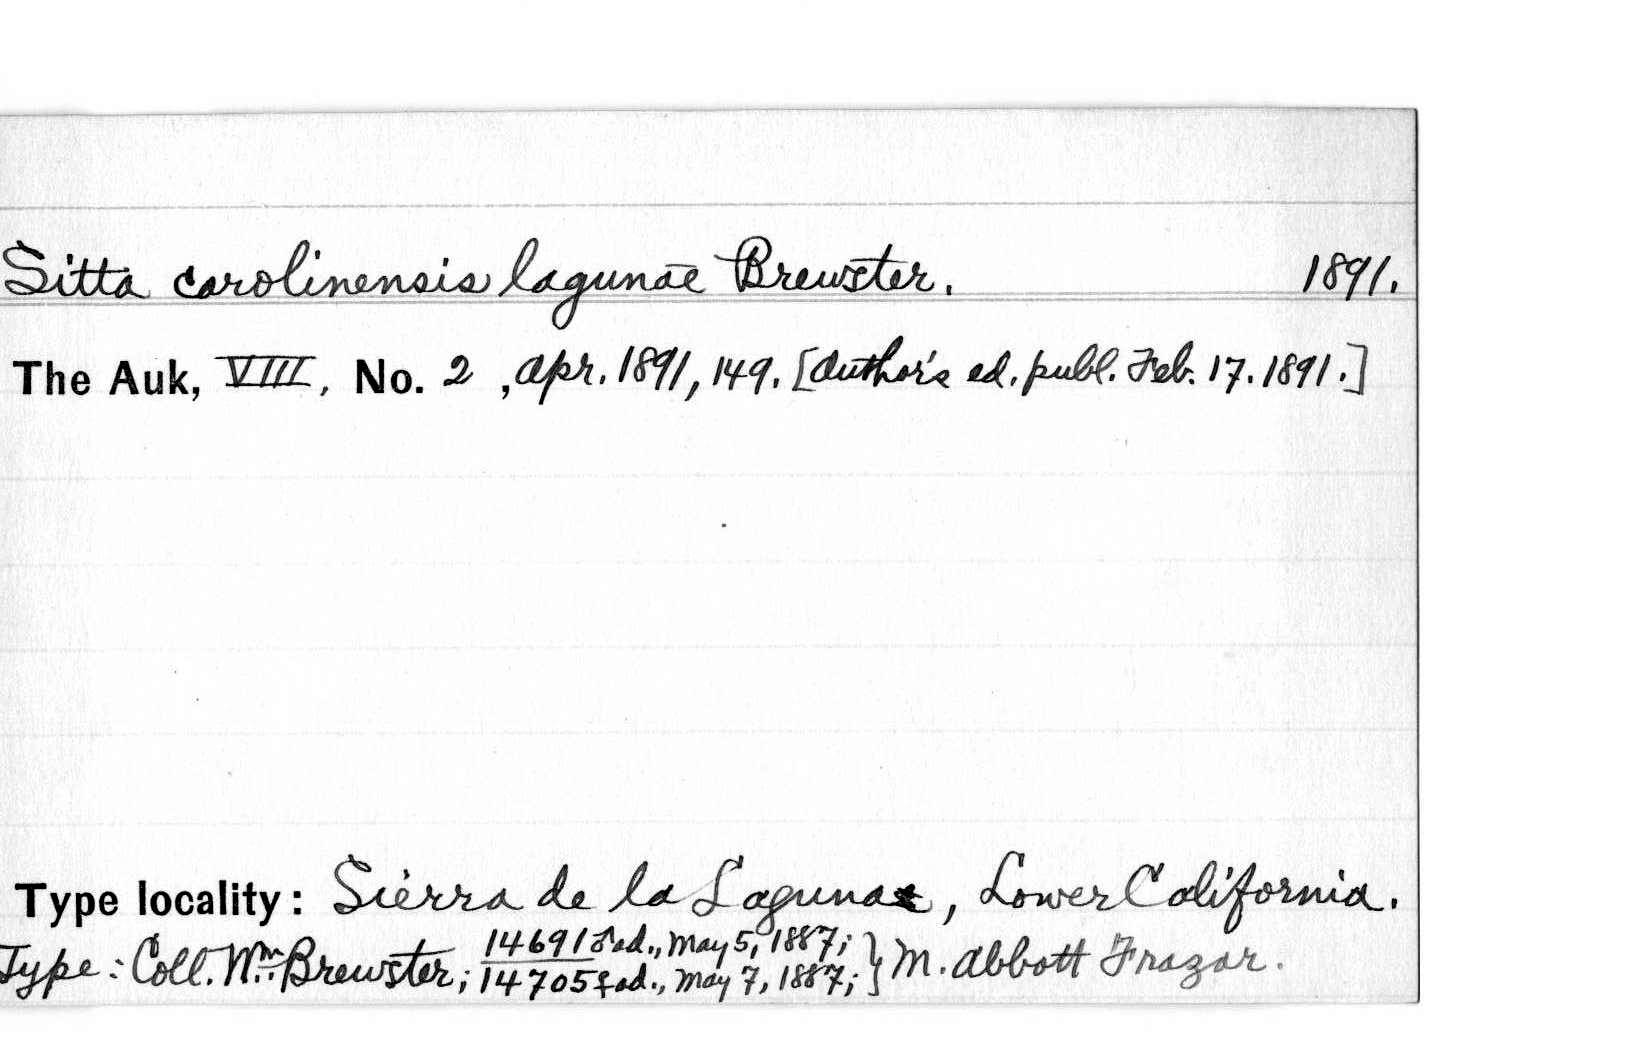 Sitta carolinensis lagunae Brewster. 1891.
The Auk, VIII, No. 2, Apr. 1891, 149. [Author's ed. publ. Feb. 17. 1891.]
Type locality: Sierra de la Laguna, Lower California.
Type: Coll. Wm. Brewster; 14691 ♂ ad., May 5, 1887;
14705 ♀ ad., May 7, 1887; } M. Abbott Frazar.